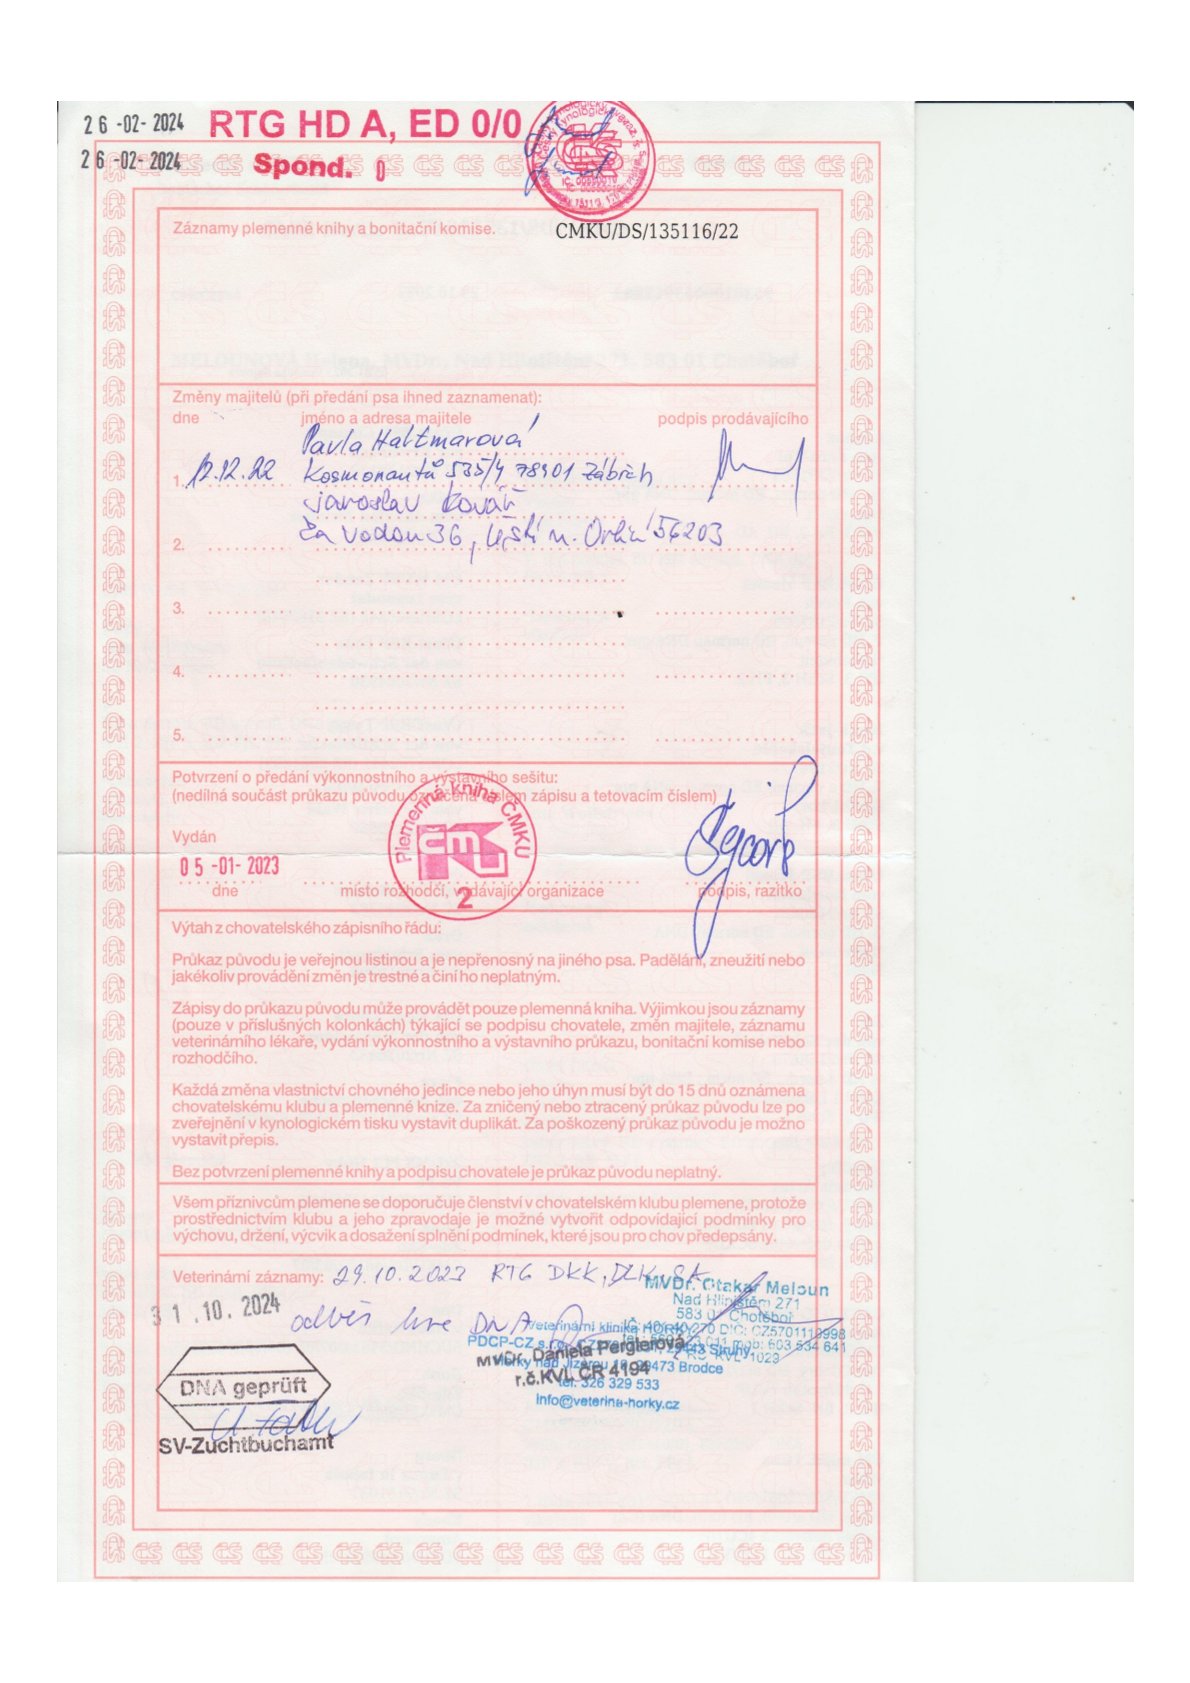 26 -02- 2024 RTG HD A, ED 0/0
26 -02- 2024 Spond. 0
Záznamy plemenné knihy a bonitační komise. CMKU/DS/135116/22
Změny majitelů (při předání psa ihned zaznamenat):
dne jméno a adresa majitele podpis prodávajícího
Pavla Haltmarová
1. 12.12.22 Kosmonautů 535/4 78901 Zábřeh
Jaroslav Kovář
2. Za vodou 36, Ústí n. Orlicí 56203
3.
4.
5.
Potvrzení o předání výkonnostního a výstavního sešitu:
(nedílná součást průkazu původu označená číslem zápisu a tetovacím číslem)
Plemenná kniha ČMKU
Vydán
05 -01- 2023
dne místo rozhodčí, vydávající organizace podpis, razítko
2
Výtah z chovatelského zápisního řádu:
Průkaz původu je veřejnou listinou a je nepřenosný na jiného psa. Padělání, zneužití nebo
jakékoliv provádění změn je trestné a činí ho neplatným.
Zápisy do průkazu původu může provádět pouze plemenná kniha. Výjimkou jsou záznamy
(pouze v příslušných kolonkách) týkající se podpisu chovatele, změn majitele, záznamu
veterinárního lékaře, vydání výkonnostního a výstavního průkazu, bonitační komise nebo
rozhodčího.
Každá změna vlastnictví chovného jedince nebo jeho úhyn musí být do 15 dnů oznámena
chovatelskému klubu a plemenné knize. Za zničený nebo ztracený průkaz původu lze po
zveřejnění v kynologickém tisku vystavit duplikát. Za poškozený průkaz původu je možno
vystavit přepis.
Bez potvrzení plemenné knihy a podpisu chovatele je průkaz původu neplatný.
Všem příznivcům plemene se doporučuje členství v chovatelském klubu plemene, protože
prostřednictvím klubu a jeho zpravodaje je možné vytvořit odpovídající podmínky pro
výchovu, držení, výcvik a dosažení splnění podmínek, které jsou pro chov předepsány.
Veterinární záznamy: 29.10.2023 RTG DKK, DLK,
MVDr. Otakar Meloun
Nad Hliništěm 271
583 01 Chotěboř
31.10.2024 odběr krve DNA
Veterinární klinika HORKY
PDCP-CZ s.r.o.
MVDr. Daniela Perglerová
Horky nad Jizerou 18, 29473 Brodce
r.č.KVL ČR 4194
tel. 326 329 533
info@veterina-horky.cz
DNA geprüft
SV-Zuchtbuchamt